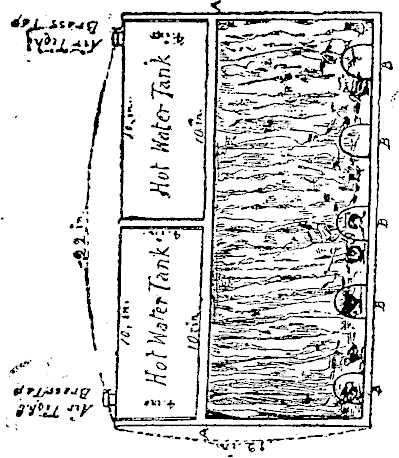 Air Tight
Brass Tap
22 in
Air Tight
Brass Tap
10 in.
10 in.
4 in
Hot Water Tank
4 in
4 in
Hot Water Tank
4 in
10 in
10 in
A
A
12 in
B
B
B
B
B